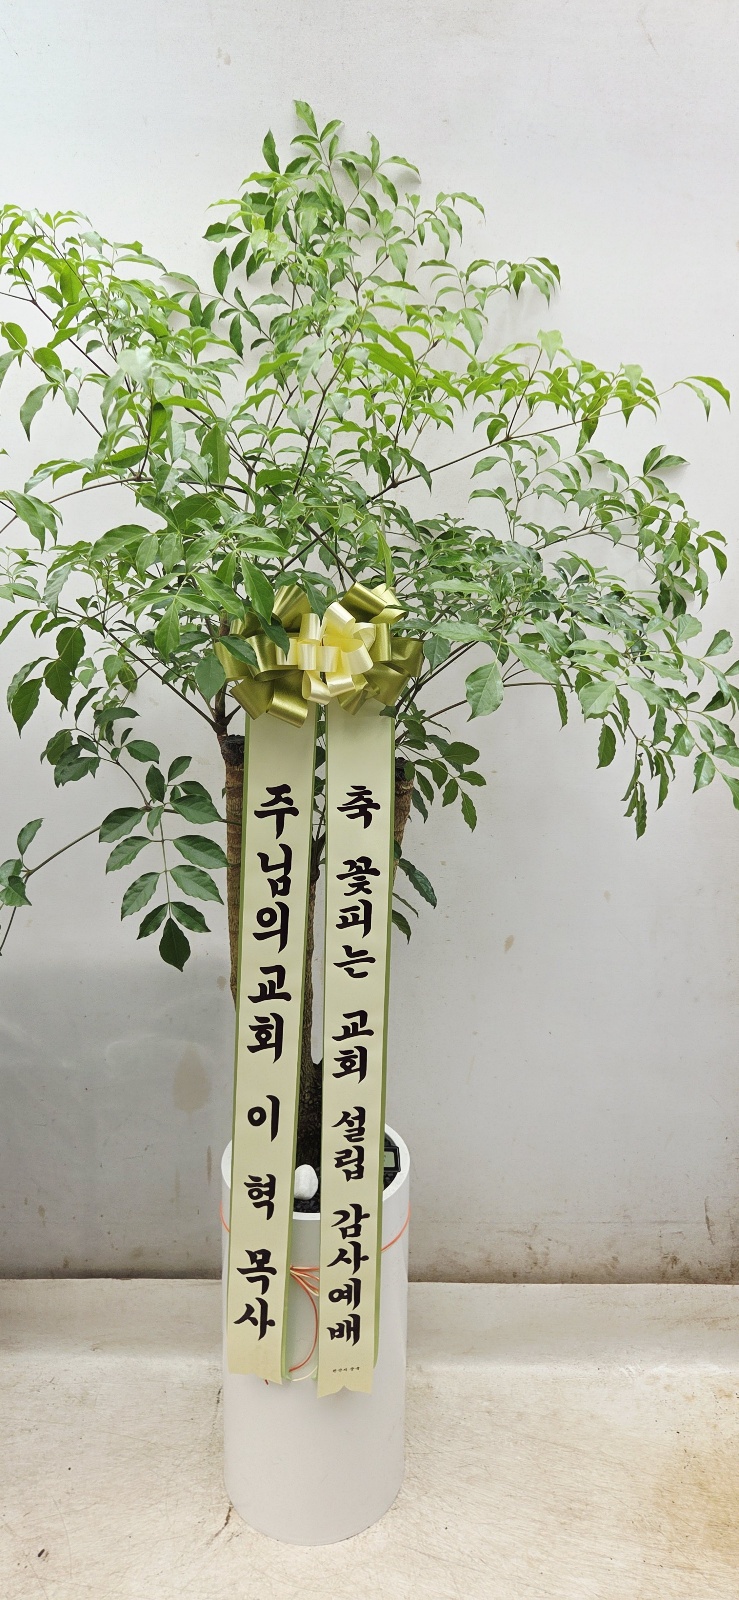 축 꽃피는 교회 설립 감사예배
주님의교회 이 혁 목사